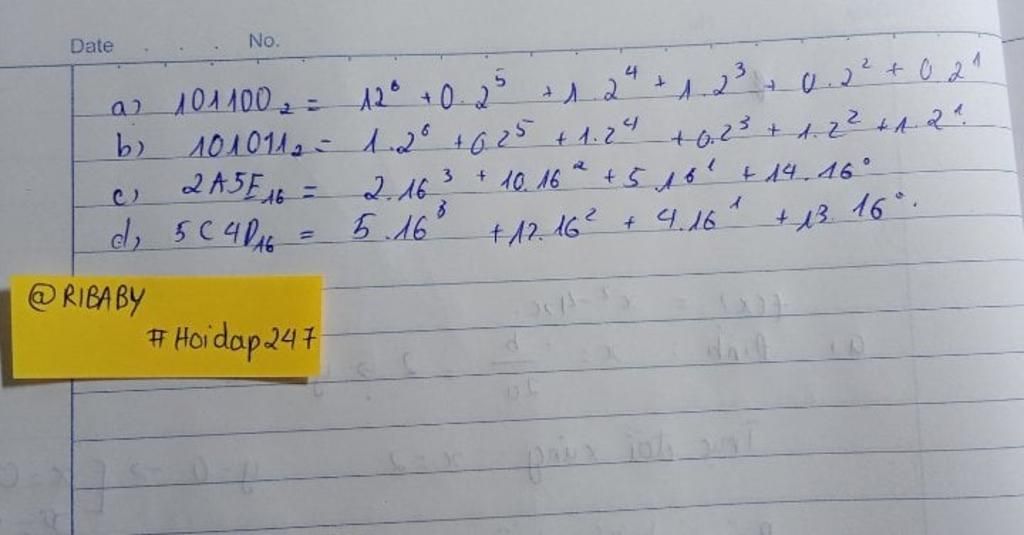 Date . . . No.
a) 101100₂ = 12⁶ + 0.2⁵ + 1.2⁴ + 1.2³ + 0.2² + 0.2¹
b) 101011₂ = 1.2⁶ + 0.2⁵ + 1.2⁴ + 0.2³ + 1.2² + 1.2¹.
c) 2A5E₁₆ = 2.16³ + 10.16² + 5.16¹ + 14.16⁰
d) 5C4D₁₆ = 5.16³ + 12.16² + 4.16¹ + 13.16⁰.
@RIBABY
#Hoidap247